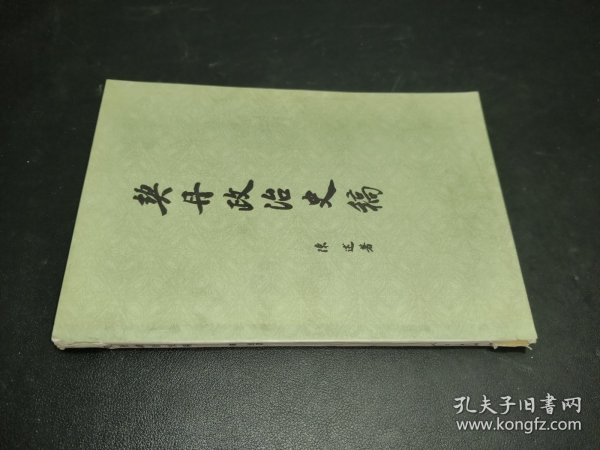 契丹政治史稿
陈述著
孔夫子旧书网
www.kongfz.com